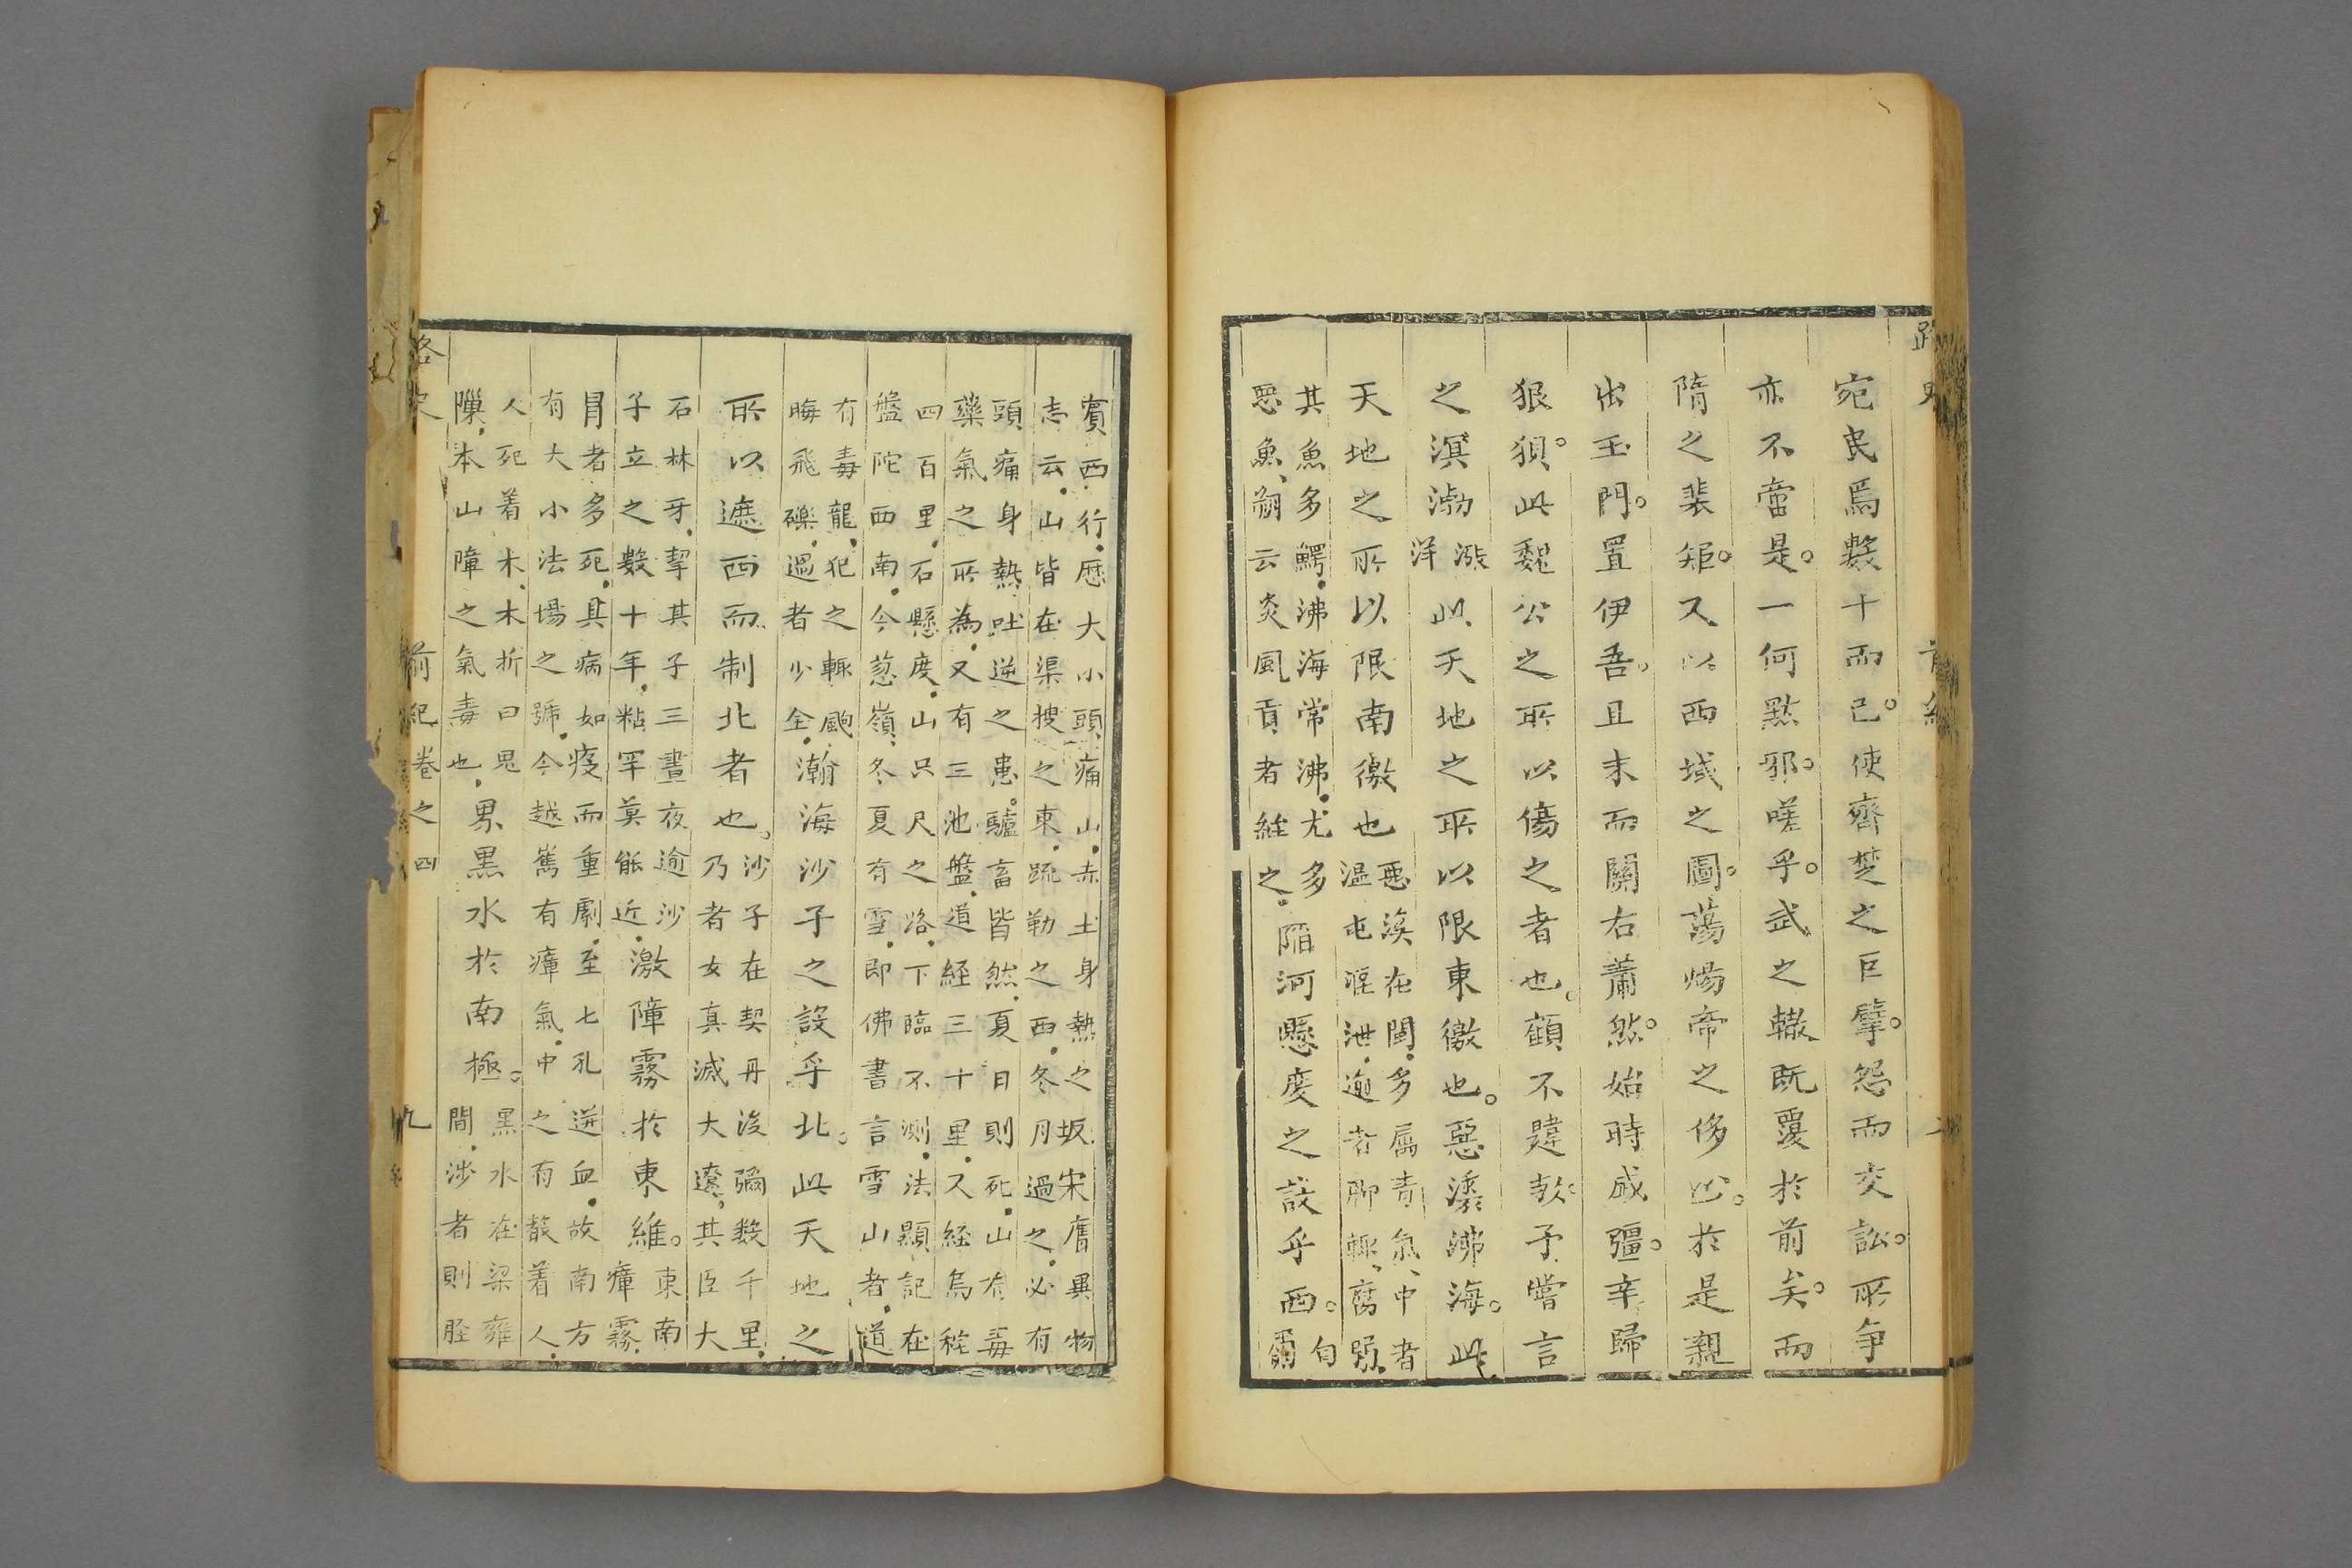 宛民焉數十而已使齊楚之巨擘怨而交訟所爭
亦不啻是一何黠邪嗟乎武之轍既覆於前矣而
隋之裴矩又以西域之圖蕩煬帝之侈心於是親
出玉門置伊吾且末而關右蕭然始時咸彊辛歸
狠狽此魏公之所以傷之者也顧不韙歟予嘗言
之溟渤
漲
洋
此天地之所以限東徼也惡溪沸海此
天地之所以限南徼也
惡溪在閩多屬青氣中者
溫屯滛泄逾者腳輒腐弱
其魚多鰐沸海常沸尤多
惡魚翮云炎風貢者經之
陷河懸度之設乎西
自
賓西行歷大小頭痛山赤土身熱之坂宋膺異物
志云山皆在渠搜之東疏勒之西冬月過之必有
頭痛身熱吐逆之患驢畜皆然夏日則死山有毒
藥氣之所為又有三池盤道経三十里又経烏秅
四百里石懸度山只尺之路下臨不測法顯記在
盤陀西南今葱嶺冬夏有雪即佛書言雪山者道
有毒龍犯之輒颰
晦飛礫過者少全
瀚海沙子之設乎北此天地之
所以遮西而制北者也
沙子在契丹後彌數千里
乃者女真滅大遼其臣大
石林牙挈其子三晝夜逾沙
子立之數十年粘罕莫能近
激障霧於東維
東南
瘴霧
冒者多死具病如疫而重劇至七孔迸血故南方
有大小法場之號今越嶲有瘴氣中之有聲着人
人死着木木折曰鬼
隟本山障之氣毒也
累黒水於南極
黒水在梁雍
間涉者則脛
路史
前紀卷之四
九